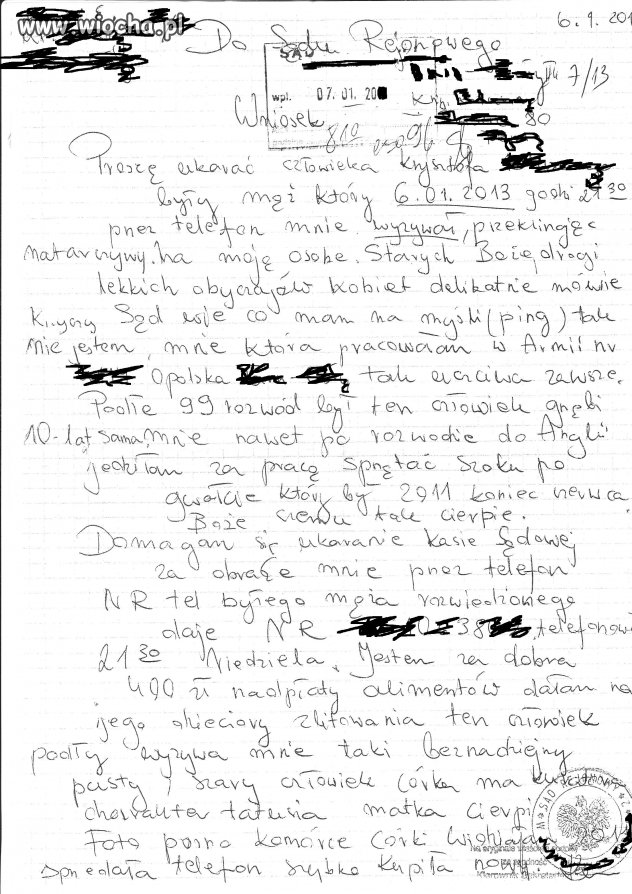 www.wiocha.pl
6.1.201
Do Sądu Rejonowego
SĄD
7/13
wpł. 07.01.20
Wniosek
80
810
Proszę ukarać człowieka Krysztofa
były mąż który 6.01.2013 godz 21 30
pnez telefon mnie wyzywał, przeklinając
natarczywy na moję osobe. Starych Boże, drogi
lekkich obyczajów kobiet delikatnie mówie
Sąd wie co mam na myśli (ping) tak
nie jestem, mnie która pracowałam w Armii nr
Opolska tak uczciwa zawsze.
Podłe 99 rozwód był ten człowiek gnębi
10-lat sama, mnie nawet po rozwodzie do Anglii
jeździłam za pracę sprzątać szoku po
gwałcie który był 2011 koniec czerwca
Boże czemu tak cierpie.
Domagam się ukaranie kasie Sądowej
za obrazę mnie pnez telefon
NR tel byłego męża rozwiedzionego
daje NR 38 telefonow
21 30 Niedziela. Jestem za dobra
400 zł nadpłaty alimentów dałam na
jego dzieciory zlitowania ten człowiek
podły wyzywa mnie taki beznadziejny
pusty, szary człowiek córka ma
charakter tatusia matka cierpi
Foto porno komórce córki widniała
spnedała telefon szybko kupiła nowy